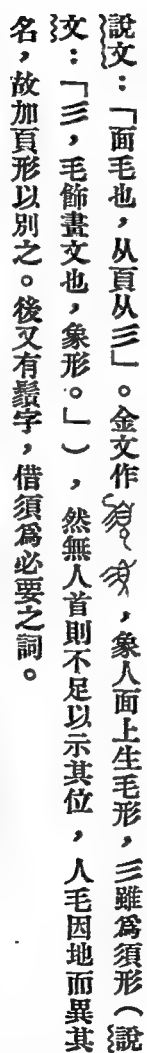 說文：「面毛也，从頁从彡」。金文作，象人面上生毛形，彡雖爲須形（說
文：「彡，毛飾畫文也，象形。」），然無人首則不足以示其位，人毛因地而異其
名，故加頁形以別之。後又有鬚字，借須爲必要之詞。